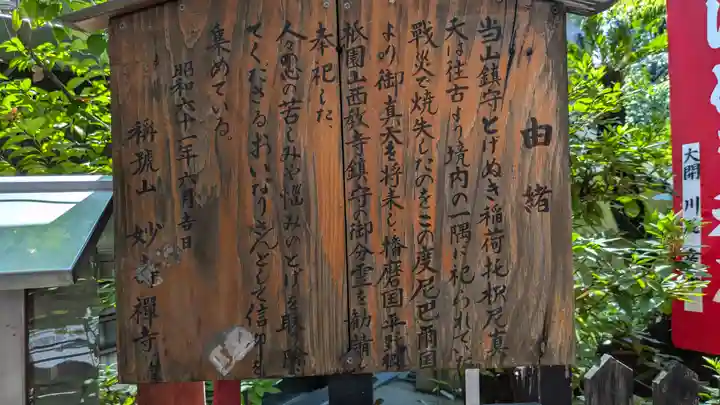 由緒
当山鎮守とげぬき稲荷托枳尼真
天は往古より境内の一隅に祀られてい
戦災で焼失したのをこの度尼巴雨国
より御真天を将来し播磨国平野郷
祇園山西教寺鎮守の御分霊を勧請し
奉祀した。
人々の心の苦しみや悩みいとげを取り除
てくださるおいなりさんとして信仰を
集めている。
昭和六十一年六月吉日
稱號山 妙壽禪寺
大開 川